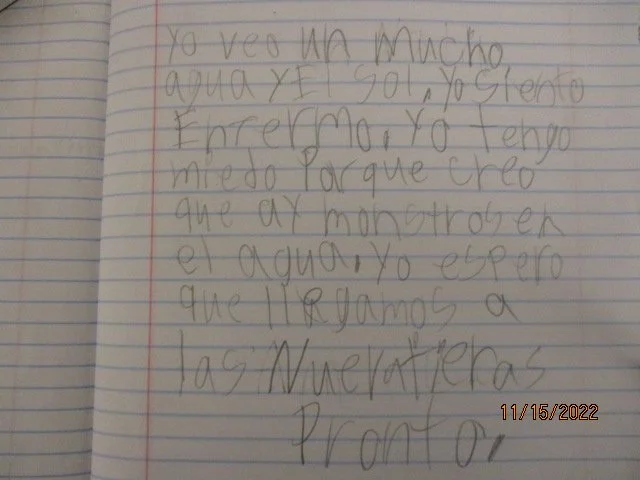 Yo veo un mucho
agua y El sol, yo siento
Enfermo, Yo tengo
miedo Porque creo
que ay monstros en
el agua, yo espero
que llegamos a
las Nueratjeras
Pronto,
11/15/2022